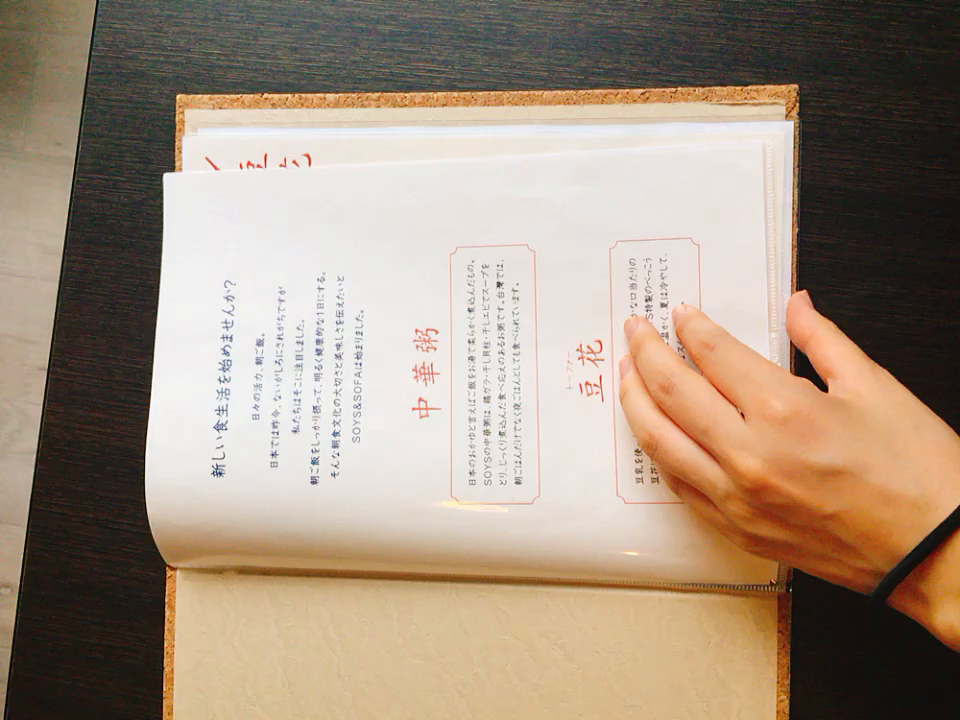 新しい食生活を始めませんか?
日々の活力、朝ご飯。
日本では昨今、ないがしろにされがちですが
私たちはそこに注目しました。
朝ご飯をしっかり摂って、明るく健康的な1日にする、
そんな朝食文化の大切さと美味しさを伝えたいと
SOYS&SOFAは始まりました。
中華粥
日本のおかゆと言えばご飯をお湯で柔らかく煮込んだもの。
SOYSの中華粥は、鶏ガラ・干し貝柱・干しエビでスープを
とり、じっくり煮込んだ食べ応えのあるお粥です。台湾では、
朝ごはんだけでなく夜ごはんとしても食べられています。
トーファー
豆花
豆乳を使 かな口当たりの
豆花 S特製のべっこう
温かく、夏は冷やして、
豆花